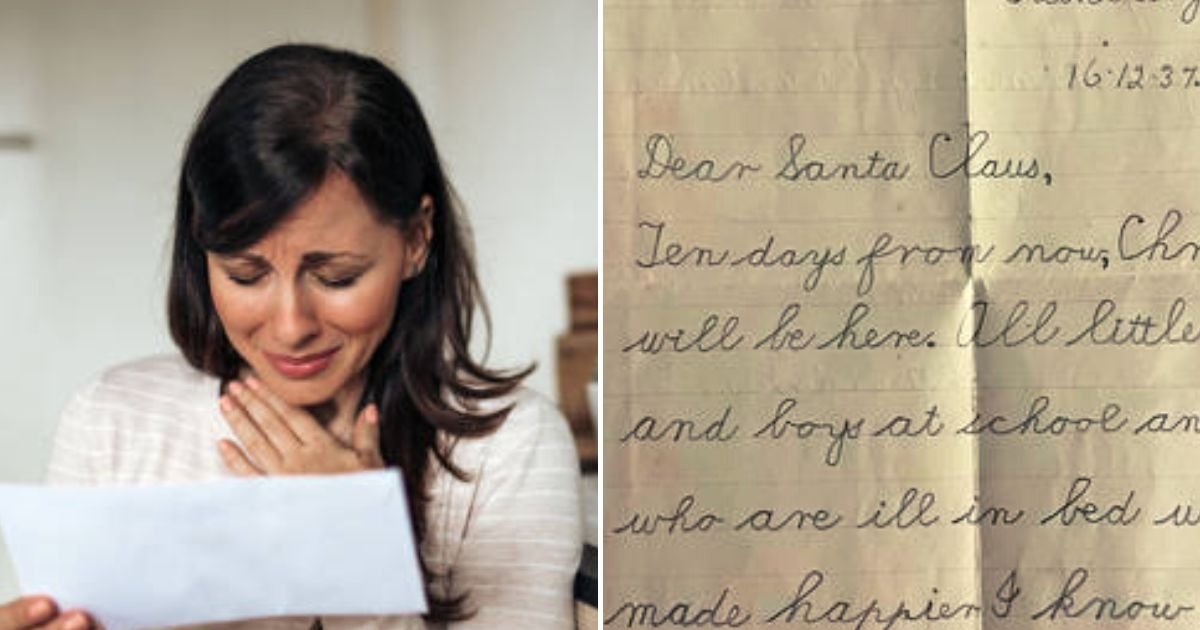 16-12-37.
Dear Santa Claus,
Ten days from now, Chr
will be here. All little
and boys at school an
who are ill in bed w
made happier I know